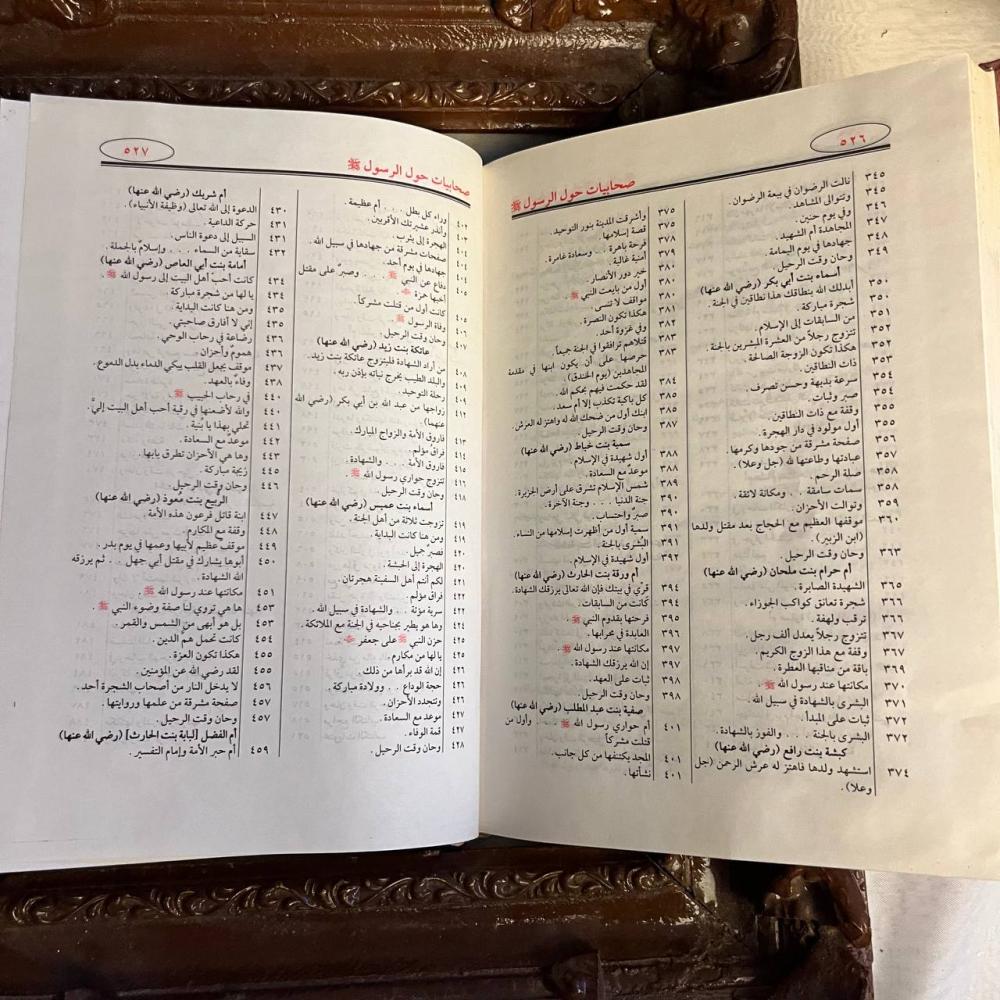 ٥٢٦
صحابيات حول الرسول ﷺ
نالت الرضوان في بيعة الرضوان. ٣٤٥
وتتوالى المشاهد. ٣٤٥
وفي يوم حنين. ٣٤٦
المجاهدة أم الشهيد. ٣٤٧
جهادها في يوم اليمامة. ٣٤٨
وحان وقت الرحيل. ٣٤٩
أسماء بنت أبي بكر (رضي الله عنها)
أبدلك الله بنطاقك هذا نطاقين في الجنة. ٣٥٠
شجرة مباركة. ٣٥٠
من السابقات إلى الإسلام. ٣٥١
تتزوج رجلاً من العشرة المبشرين بالجنة. ٣٥٢
هكذا تكون الزوجة الصالحة. ٣٥٢
ذات النطاقين. ٣٥٣
سرعة بديهة وحسن تصرف. ٣٥٤
صبر وثبات. ٣٥٤
وقفة مع ذات النطاقين. ٣٥٥
أول مولود في دار الهجرة. ٣٥٥
صفحة مشرقة من جودها وكرمها. ٣٥٦
عبادتها وطاعتها لله (جل وعلا). ٣٥٧
صلة الرحم. ٣٥٨
سمات سامقة . . ومكانة لائقة. ٣٥٨
وتوالت الأحزان. ٣٥٩
موقفها العظيم مع الحجاج بعد مقتل ولدها ٣٦٠
(ابن الزبير).
وحان وقت الرحيل. ٣٦٣
أم حرام بنت ملحان (رضي الله عنها)
الشهيدة الصابرة. ٣٦٥
شجرة تعانق كواكب الجوزاء. ٣٦٦
ترقب ولهفة. ٣٦٦
تتزوج رجلاً يعدل ألف رجل. ٣٦٧
وقفة مع هذا الزوج الكريم. ٣٦٧
باقة من مناقبها العطرة. ٣٦٩
مكانتها عند رسول الله ﷺ. ٣٧٠
البشرى بالشهادة في سبيل الله. ٣٧١
ثبات على المبدأ. ٣٧٢
البشرى بالجنة . . . والفوز بالشهادة. ٣٧٢
كبشة بنت رافع (رضي الله عنها)
استشهد ولدها فاهتز له عرش الرحمن (جل ٣٧٤
وعلا).
وأشرقت المدينة بنور التوحيد. ٣٧٥
قصة إسلامها. ٣٧٥
فرحة باهرة . . وسعادة غامرة. ٣٧٨
أمنية غالية. ٣٧٩
خير دور الأنصار. ٣٨٠
أول من بايعت النبي ﷺ. ٣٨٠
مواقف لا تنسى. ٣٨٠
هكذا تكون النصرة. ٣٨١
وفي غزوة أحد. ٣٨٢
قتلاهم ترافقوا في الجنة جميعاً. ٣٨٣
حرصها على أن يكون ابنها في مقدمة ٣٨٣
المجاهدين (يوم الخندق).
لقد حكمت فيهم بحكم الله. ٣٨٤
كل باكية تكذب إلا أم سعد. ٣٨٥
ابنك أول من ضحك الله له واهتز له العرش. ٣٨٥
وحان وقت الرحيل. ٣٨٧
سمية بنت خياط (رضي الله عنها)
أول شهيدة في الإسلام. ٣٨٨
موعد مع السعادة. ٣٨٨
شمس الإسلام تشرق على أرض الجزيرة. ٣٨٩
جنة الدنيا . . . وجنة الآخرة. ٣٩٠
صبرٌ واحتساب. ٣٩٠
سمية أول من أظهرت إسلامها من النساء. ٣٩١
البُشرى بالجنة. ٣٩١
أول شهيدة في الإسلام. ٣٩٢
أم ورقة بنت الحارث (رضي الله عنها)
قرِّي في بيتك فإن الله تعالى يرزقك الشهادة. ٣٩٤
كانت من السابقات. ٣٩٤
فرحتها بقدوم النبي ﷺ. ٣٩٥
العابدة في محرابها. ٣٩٦
مكانتها عند رسول الله ﷺ. ٣٩٧
إن الله يرزقك الشهادة. ٣٩٧
ثبات على العهد. ٣٩٨
وحان وقت الرحيل. ٣٩٨
صفية بنت عبد المطلب (رضي الله عنها)
أم حواري رسول الله ﷺ . . وأول من ٤٠١
قتلت مشركاً
المجد يكتنفها من كل جانب. ٤٠١
نشأتها. ٤٠١
٥٢٧
صحابيات حول الرسول ﷺ
وراء كل بطل . . . أم عظيمة. ٤٠٢
وأنذر عشيرتك الأقربين. ٤٠٢
الهجرة إلى يثرب. ٤٠٣
صفحات مشرقة من جهادها في سبيل الله. ٤٠٤
جهادها في يوم أحد. ٤٠٤
دفاع عن النبي ﷺ . . . وصبرٌ على مقتل ٤٠٥
أخيها حمزة
كانت أول من قتلت مشركاً. ٤٠٥
وفاة الرسول ﷺ. ٤٠٦
وحان وقت الرحيل. ٤٠٧
عاتكة بنت زيد (رضي الله عنها)
من أراد الشهادة فليتزوج عاتكة بنت زيد. ٤٠٨
والبلد الطيب يخرج نباته بإذن ربه. ٤٠٩
رحلة التوحيد. ٤٠٩
زواجها من عبد الله بن أبي بكر (رضي الله ٤١٢
عنهما).
فاروق الأمة والزواج المبارك ٤١٣
فراق مؤلم. ٤١٤
فاروق الأمة . . . والشهادة. ٤١٥
تتزوج حواري رسول الله ﷺ ٤١٦
وحان وقت الرحيل. ٤١٨
أسماء بنت عميس (رضي الله عنها)
تزوجت ثلاثة من أهل الجنة. ٤١٩
ومن هنا كانت البداية. ٤١٩
فصبر جميل ٤٢٠
الهجرة إلى الحبشة. ٤٢٠
لكم أنتم أهل السفينة هجرتان. ٤٢١
فراق مؤلم. ٤٢٢
سرية مؤتة . . والشهادة في سبيل الله. ٤٢٢
وها هو يطير بجناحيه في الجنة مع الملائكة. ٤٢٤
حزن النبي ﷺ على جعفر ٤٢٥
يا لها من مكارم. ٤٢٥
إن الله قد برأها من ذلك. ٤٢٦
حجة الوداع . . وولادة مباركة. ٤٢٦
وتتجدد الأحزان. ٤٢٦
موعد مع السعادة. ٤٢٧
قمة الوفاء. ٤٢٧
وحان وقت الرحيل. ٤٢٨
أم شريك (رضي الله عنها)
الدعوة إلى الله تعالى (وظيفة الأنبياء). ٤٣٠
حركة الداعية. ٤٣١
السبيل إلى دعوة الناس. ٤٣١
سقاية من السماء . . . وإسلامٌ بالجملة. ٤٣٢
أمامة بنت أبي العاص (رضي الله عنها)
كانت أحبّ أهل البيت إلى رسول الله ﷺ. ٤٣٤
يا لها من شجرة مباركة. ٤٣٤
ومن هنا كانت البداية. ٤٣٥
إني لا أفارق صاحبتي. ٤٣٥
رضاعة في رحاب الوحي. ٤٣٦
هموم وأحزان. ٤٣٦
موقف يجعل القلب يبكي الدماء بدل الدموع. ٤٣٧
وفاءٌ بالعهد. ٤٣٨
في رحاب الحبيب ﷺ. ٤٤٠
والله لأضعنها في رقبة أحب أهل البيت إليَّ. ٤٤٠
تحلي بهذا يا بُنية. ٤٤١
موعدٌ مع السعادة. ٤٤٢
وها هي الأحزان تطرق بابها. ٤٤٣
زيجة مباركة. ٤٤٥
وحان وقت الرحيل. ٤٤٦
الرُّبيع بنت مُعوذ (رضي الله عنها)
ابنة قاتل فرعون هذه الأمة. ٤٤٧
وقفة مع المكارم. ٤٤٨
موقف عظيم لأبيها وعمها في يوم بدر. ٤٤٩
أبوها يشارك في مقتل أبي جهل . . ثم يرزقه ٤٥٠
الله الشهادة.
مكانتها عند رسول الله ﷺ. ٤٥١
ها هي تروي لنا صفة وضوء النبي ﷺ. ٤٥٣
بل هو أبهى من الشمس والقمر. ٤٥٣
كانت تحمل همّ الدين. ٤٥٤
هكذا تكون العزة. ٤٥٥
لقد رضي الله عن المؤمنين. ٤٥٥
لا يدخل النار من أصحاب الشجرة أحد. ٤٥٦
صفحة مشرقة من علمها وروايتها. ٤٥٧
وحان وقت الرحيل. ٤٥٧
أم الفضل [لبابة بنت الحارث] (رضي الله عنها)
أم حبر الأمة وإمام التفسير. ٤٥٩